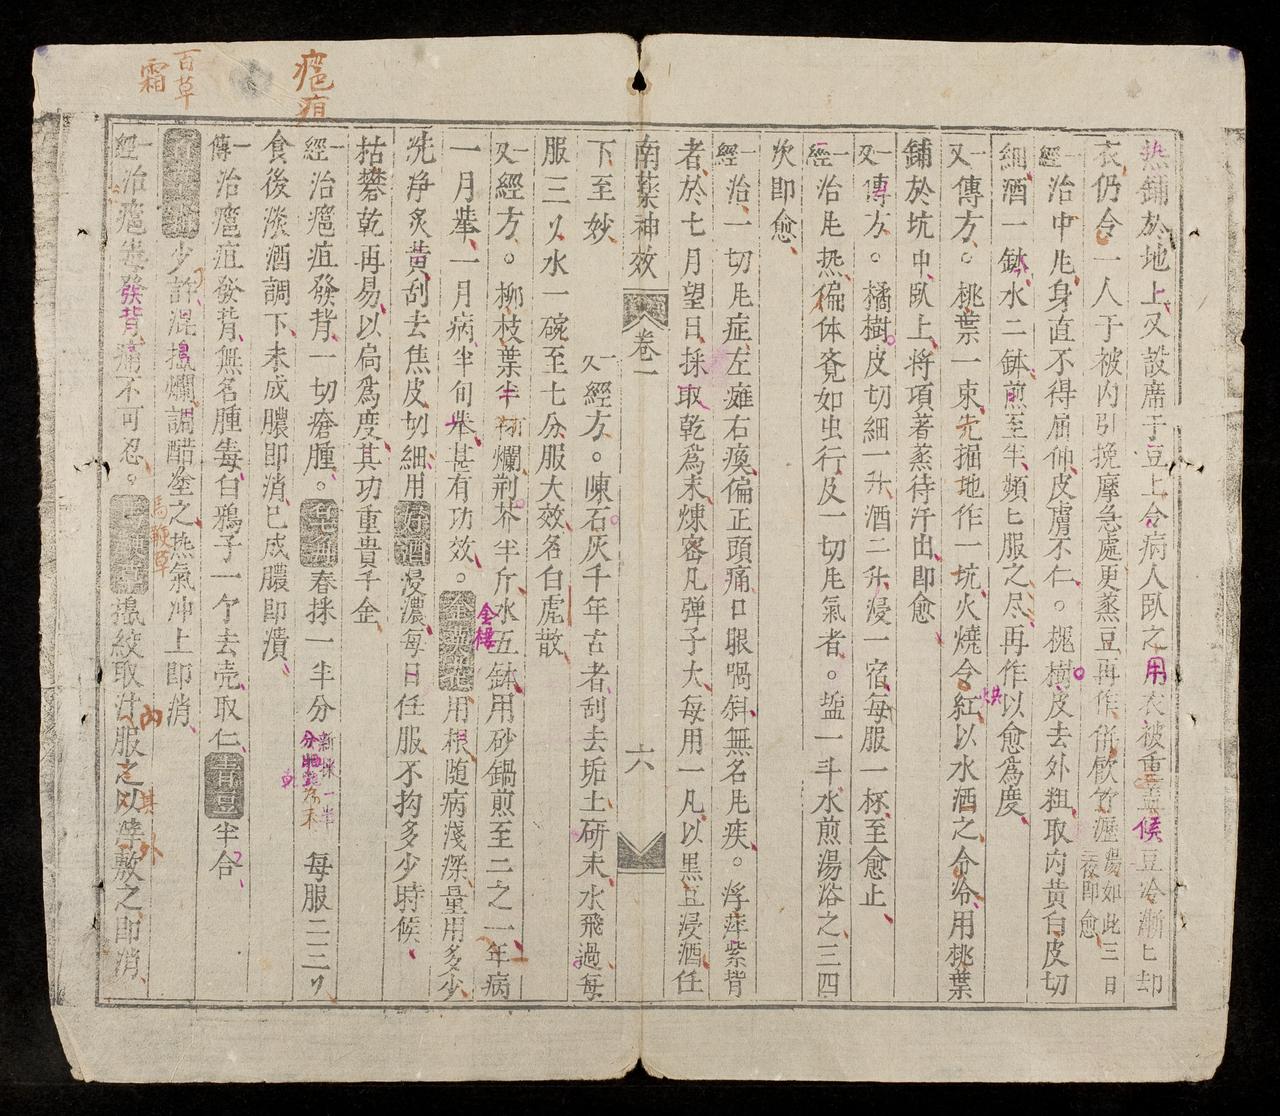 热鋪於地上又設席于豆上令病人臥之用衣被重蓋候豆冷漸匕却
衣仍令一人于被內引挽摩急處更蒸豆再作併飲竹瀝湯如此三日三夜即愈
一經治中風身直不得屈伸皮膚不仁。桃樹皮去外粗取內黃白皮切
細酒一鉢水二鉢煎至半頻匕服之尽再作以愈爲度
一又傳方。桃葉一束先掘地作一坑火燒令紅以水酒之令冷用桃葉
鋪於坑中臥上將項著蒸待汗出即愈
一又傳方。橘樹皮切細一升酒二升浸一宿每服一杯至愈止
一經治風热徧体莧如虫行及一切風氣者。塩一斗水煎湯浴之三四
次即愈
一經治一切風症左瘫右瘓偏正頭痛口眼喎斜無名風疾。浮萍紫背
者於七月望日採取乾爲末煉蜜凡彈子大每用一凡以黑豆浸酒任
南薬神效 卷一 六
下至妙 一又經方。陳石灰千年古者刮去垢土研末水飛過每
服三〻水一碗至七分服大效名白虎散
一又經方。柳枝葉半 爛荆芥半斤水五鉢用砂鍋煎至二之一年病
一月举一月病半旬举甚有功效。金櫻 用根随病淺深量用多少
洗净炙黃刮去焦皮切細用好酒浸濃每日任服不拘多少時候
枯礬乾再易以扃爲度其功重貴千金
一經治瘟疽發背一切瘡腫。 春採一半分新採一半分晒乾為末每服二三〻
食後淡酒調下未成膿即消已成膿即潰
一傳治瘟疽發背無名腫毒白鴉子一个去壳取仁青豆半合
少許混搗爛調醋塗之热氣冲上即消
一經治瘟毒發背痛不可忍。馬鞭草搗絞取汁內服之以滓敷其外之即消
百草
霜